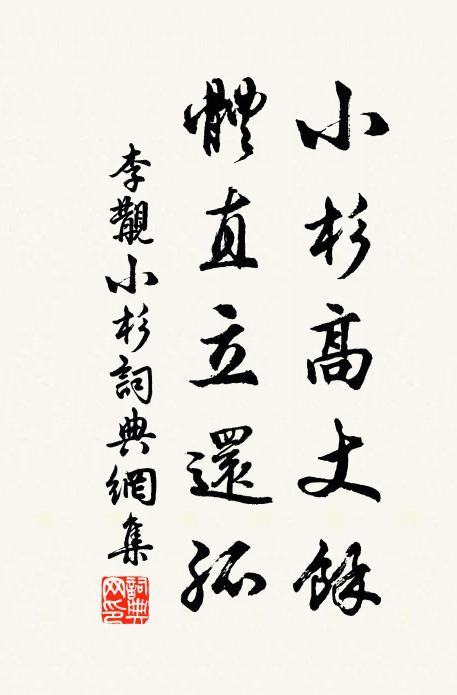 小杉高丈餘
體直立還孤
李觀小杉詞典網集
詞典网印